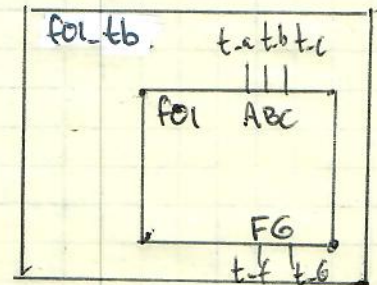 f01_tb.
t-a t-b t-c
f01 ABC
FG
t-f t-G